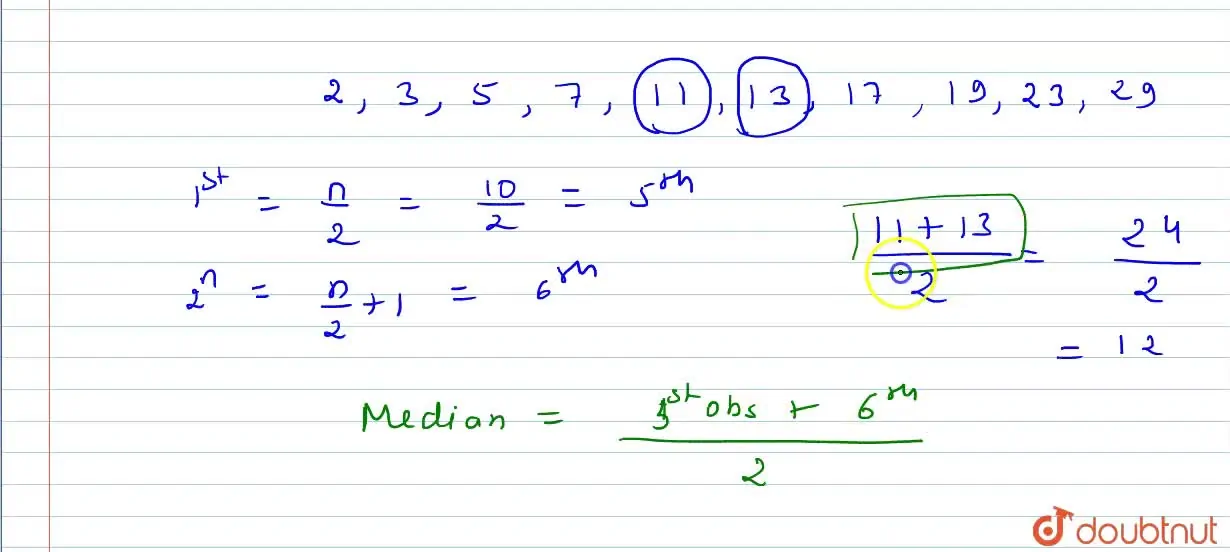 2, 3, 5, 7, 11, 13, 17, 19, 23, 29
1st = n/2 = 10/2 = 5th
2n = n/2 + 1 = 6th
11 + 13 / 2 = 24 / 2
= 12
Median = obs + 6th / 2
doubtnut